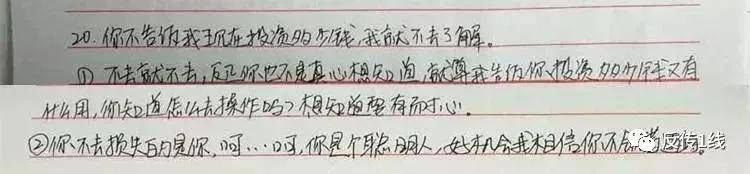 20.你不告诉我现在投资多少钱,我就不去了解。
①不去就不去,反正你也不是真心想知道,就算我告诉你投资多少钱又有
什么用,你知道怎么去操作吗?想知道要有耐心。
②你不去损失的是你,呵…呵,你是个聪明人,好机会我相信你不会错过的。
反传1线